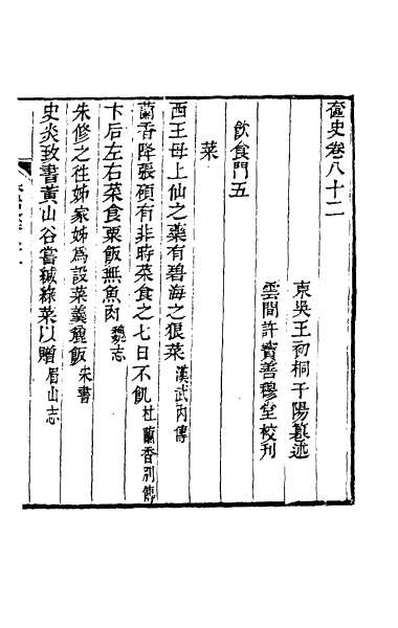 奩史卷八十二
東吳王初桐于陽纂述
雲間許寶善穆堂校刊
飲食門五
菜
西王母上仙之藥有碧海之狼菜漢武內傳
蘭香降張碩有非時菜食之七日不飢杜蘭香別傳
卞后左右菜食粟飯無魚肉魏志
朱修之往姊家姊爲設菜羹麤飯宋書
史炎致書黃山谷嘗緘綠菜以贈眉山志